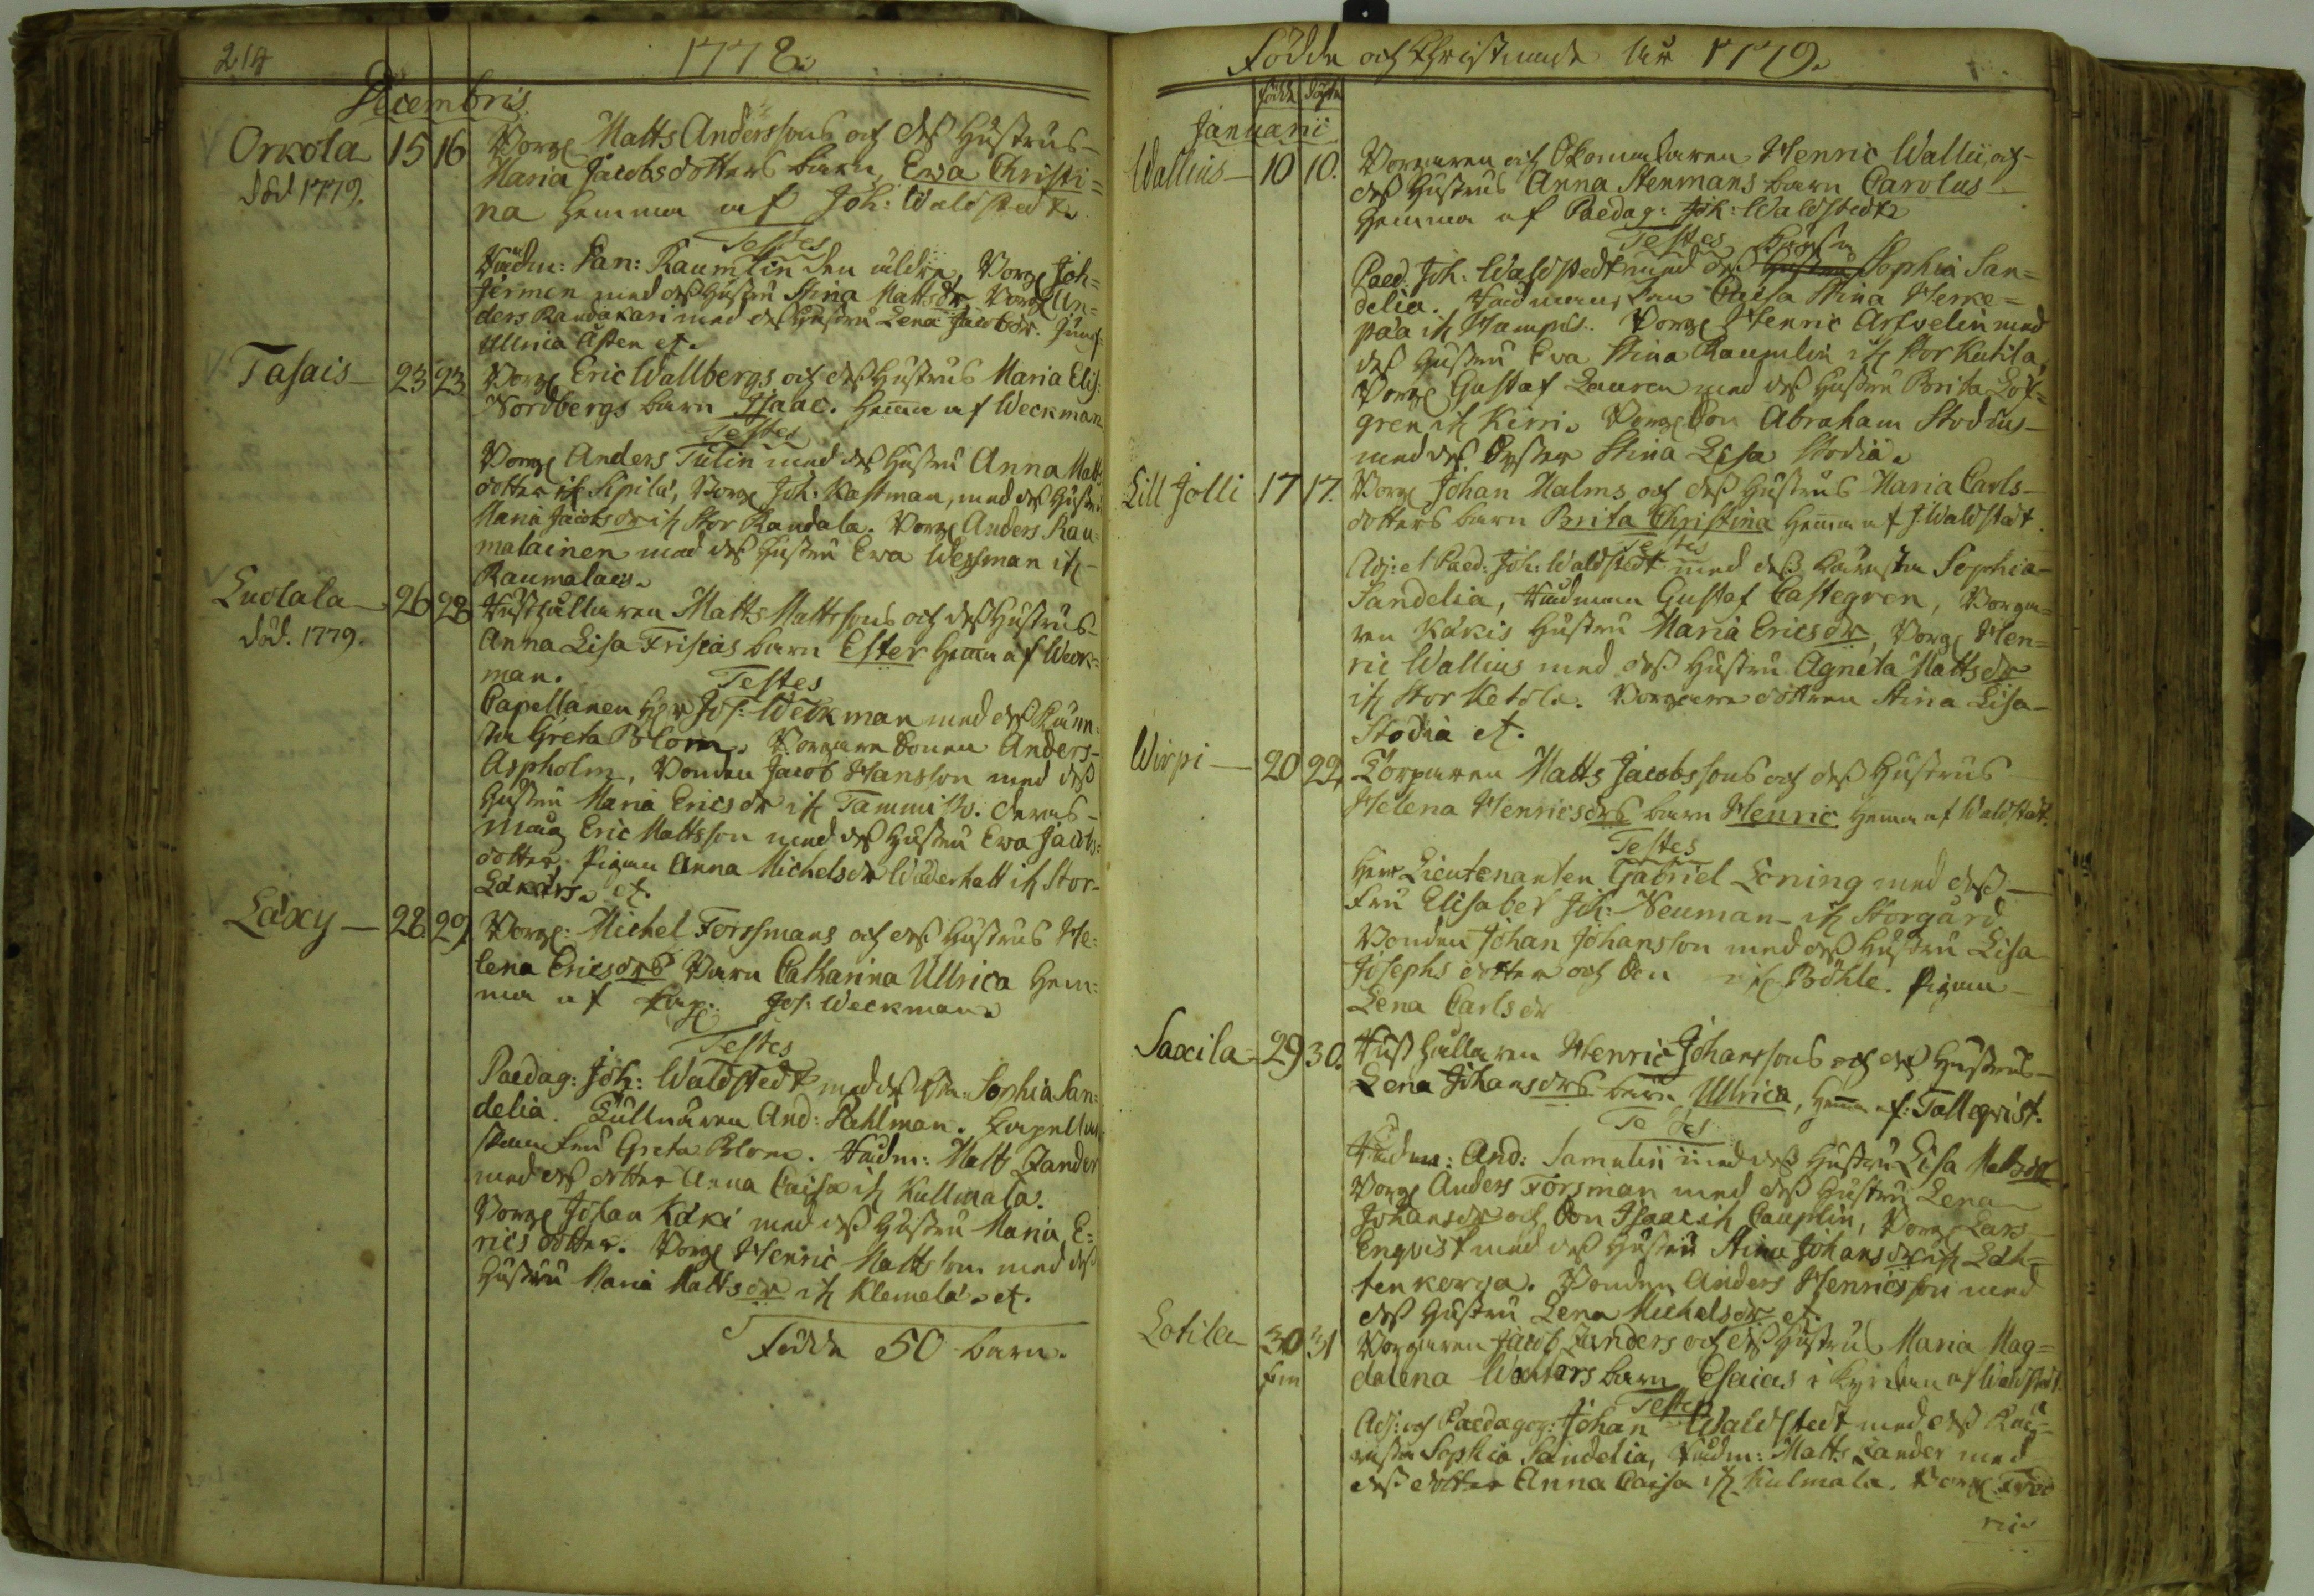 214
1778.
Decembris.
Orkola 15 16 Borg Matts Anderssons och dess hustrus
död 1779. Maria Jacobsdotters barn, Ewa Christi=
na hemma af Joh: Waldstedt.
Testes
Rådm: Dan: Raumlin den äldre, Borg Joh=
Jermen med dess hustru Stina Mattsdr, Borg An=
ders Raudakari med dess hustru Lena Jacobsdr. Jungf:
Ullrica Asten etc.
Tasais 23 23 Borg Eric Wallbergs och dess hustrus Maria Elis:
Nordbergs barn Isaac. Hemma af Weckman
Testes
Borg Anders Tulin med dess hustru Anna Matts
dotter if. Sipilä, Borg Joh: Kastman, med dess hustru
Maria Jacobsdr if. Stor Randala. Borg Anders Rau=
malainen med dess hustru Ewa Wessman if.
Raumalais.
Luolala 26 28 Hushållaren Matts Mattssons och dess hustrus
död. 1779. Anna Lisa Friskas barn Ester hemma af Weck=
man.
Testes
Capellanen Hr Jos: Weckman med dess kära
fru Greta Blom. Borgare sonen Anders
Aspholm, Bonden Jacob Hansson med dess
hustru Maria Ericsdr if. Tammisto. deras
måg Eric Mattsson med dess hustru Ewa Jacobs=
dotter. Pigan Anna Michelsdr Wäderhatt if. Stor
Läxy 28. 29. Borg: Michel Forssmans och dess hustrus He=
lena Ericsdrs Barn Catharina Ullrica hem=
ma af Cap: Jos: Weckman.
Testes
Paedag: Joh: Waldstedt med dess Sophia San=
delia. Tullnären And: Pahlman. Capellans
fru Greta Blom. Rådm: Matt Zander
med dess dotter Anna Caisa if. Kullmala.
Borg Johan Käki med dess hustru Maria E=
ricsdotter. Borg Henric Mattsson med dess
hustru Maria Mattsdr if. Klemelä. etc.
Födde 50 barn.
Födde och Christnade åhr 1779.
födde döpte
Januarii
Wallius 10 10. Borgaren och Wallii och
dess hustrus Anna Stenmans barn Carolus
hemma af Paedag: Joh: Waldstedt
Testes
Paed: Joh: Waldstedt med dess hustru Sophia San=
delia. Caisa Stina Herke=
pää if. Hampus. Borg Henric Arfvelin med
dess hustru Eva Stina Raumlin if. Stor Kutila,
Borg Gustaf Lauren med dess hustru Brita Löf=
gren if. Kirri. Borg son Abraham Stodius
med dess syster Stina Lisa Stodia.
Lill Jolli 17 17. Borg Johan Malms och dess hustrus Maria Carls=
dotters barn Brita Christina hemma af J: Waldstedt.
Testes
Adj: et Paed: Joh: Waldstedt med dess käresta Sophia
Sandelia, Rådman Gustaf Castegren, Borga=
ren Käkis hustru Maria Ericsdr, Borg Hen=
ric Wallius med dess hustru Agneta Mattsdr
if. Stor Ketola. Borgare dottren Stina Lisa
Stodia etc.
Wirpi 20 22. Torparen Matts Jacobssons och dess hustrus
Helena Henricsdrs barn Henric hemma af Waldstedt.
Testes
Herr Lieutenanten Gabriel Löning med dess
fru Elisabet Joh: Neuman if. Storgård
Bonden Johan Johansson med dess hustru Lisa
Josephs dotter och son if. Böhle. Pigan
Lena Carlsdr
Saxila 29 30. Hushållaren Henric Johanssons och dess hustrus
Lena Johansdrs barn Ullrica, hemma af: Tallqvist.
Testes
Rådm: And: Samulin med dess hustru Lisa Mattsdr
Borg Anders Forsman med dess hustru Lena
Johansdr och son Isaac if. Cauplin, Borg Lars
Enqvist med dess hustru Stina Johansdr if. Läh=
tenkorya. Bonden Anders Henricsson med
dess hustru Lena Michelsdr etc.
Lotila 30 31 Borgaren Jacob Zanders och dess hustrus Maria Mag=
dalena barn Esaias i kyrkan af Waldstedt.
Testes
Adj: och Paedagog: Johan Waldstedt med dess kä=
resta Sophia Sandelia, Rådm: Matts Zander med
dess dotter Anna Caisa if. Kulmala. Borg